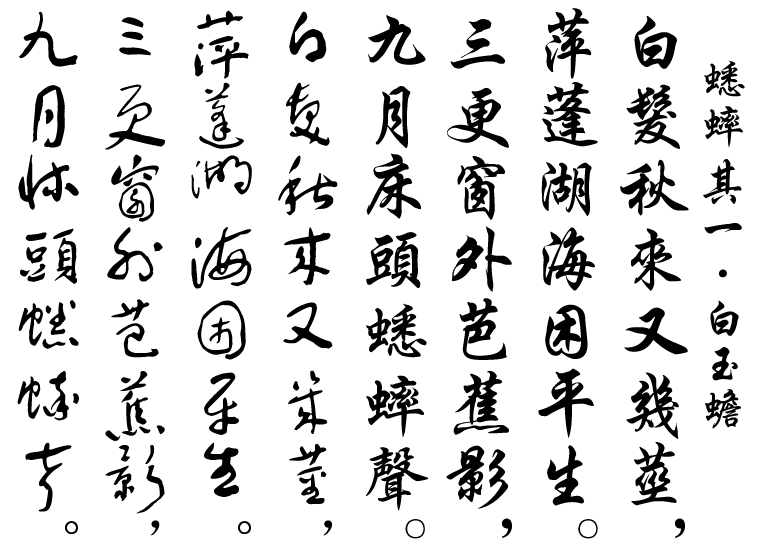 蟋蟀其一·白玉蟾
白髮秋來又幾莖，
萍蓬湖海困平生。
三更窗外芭蕉影，
九月床頭蟋蟀聲。
白髮秋來又幾莖，
萍蓬湖海困平生。
三更窗外芭蕉影，
九月床頭蟋蟀聲。